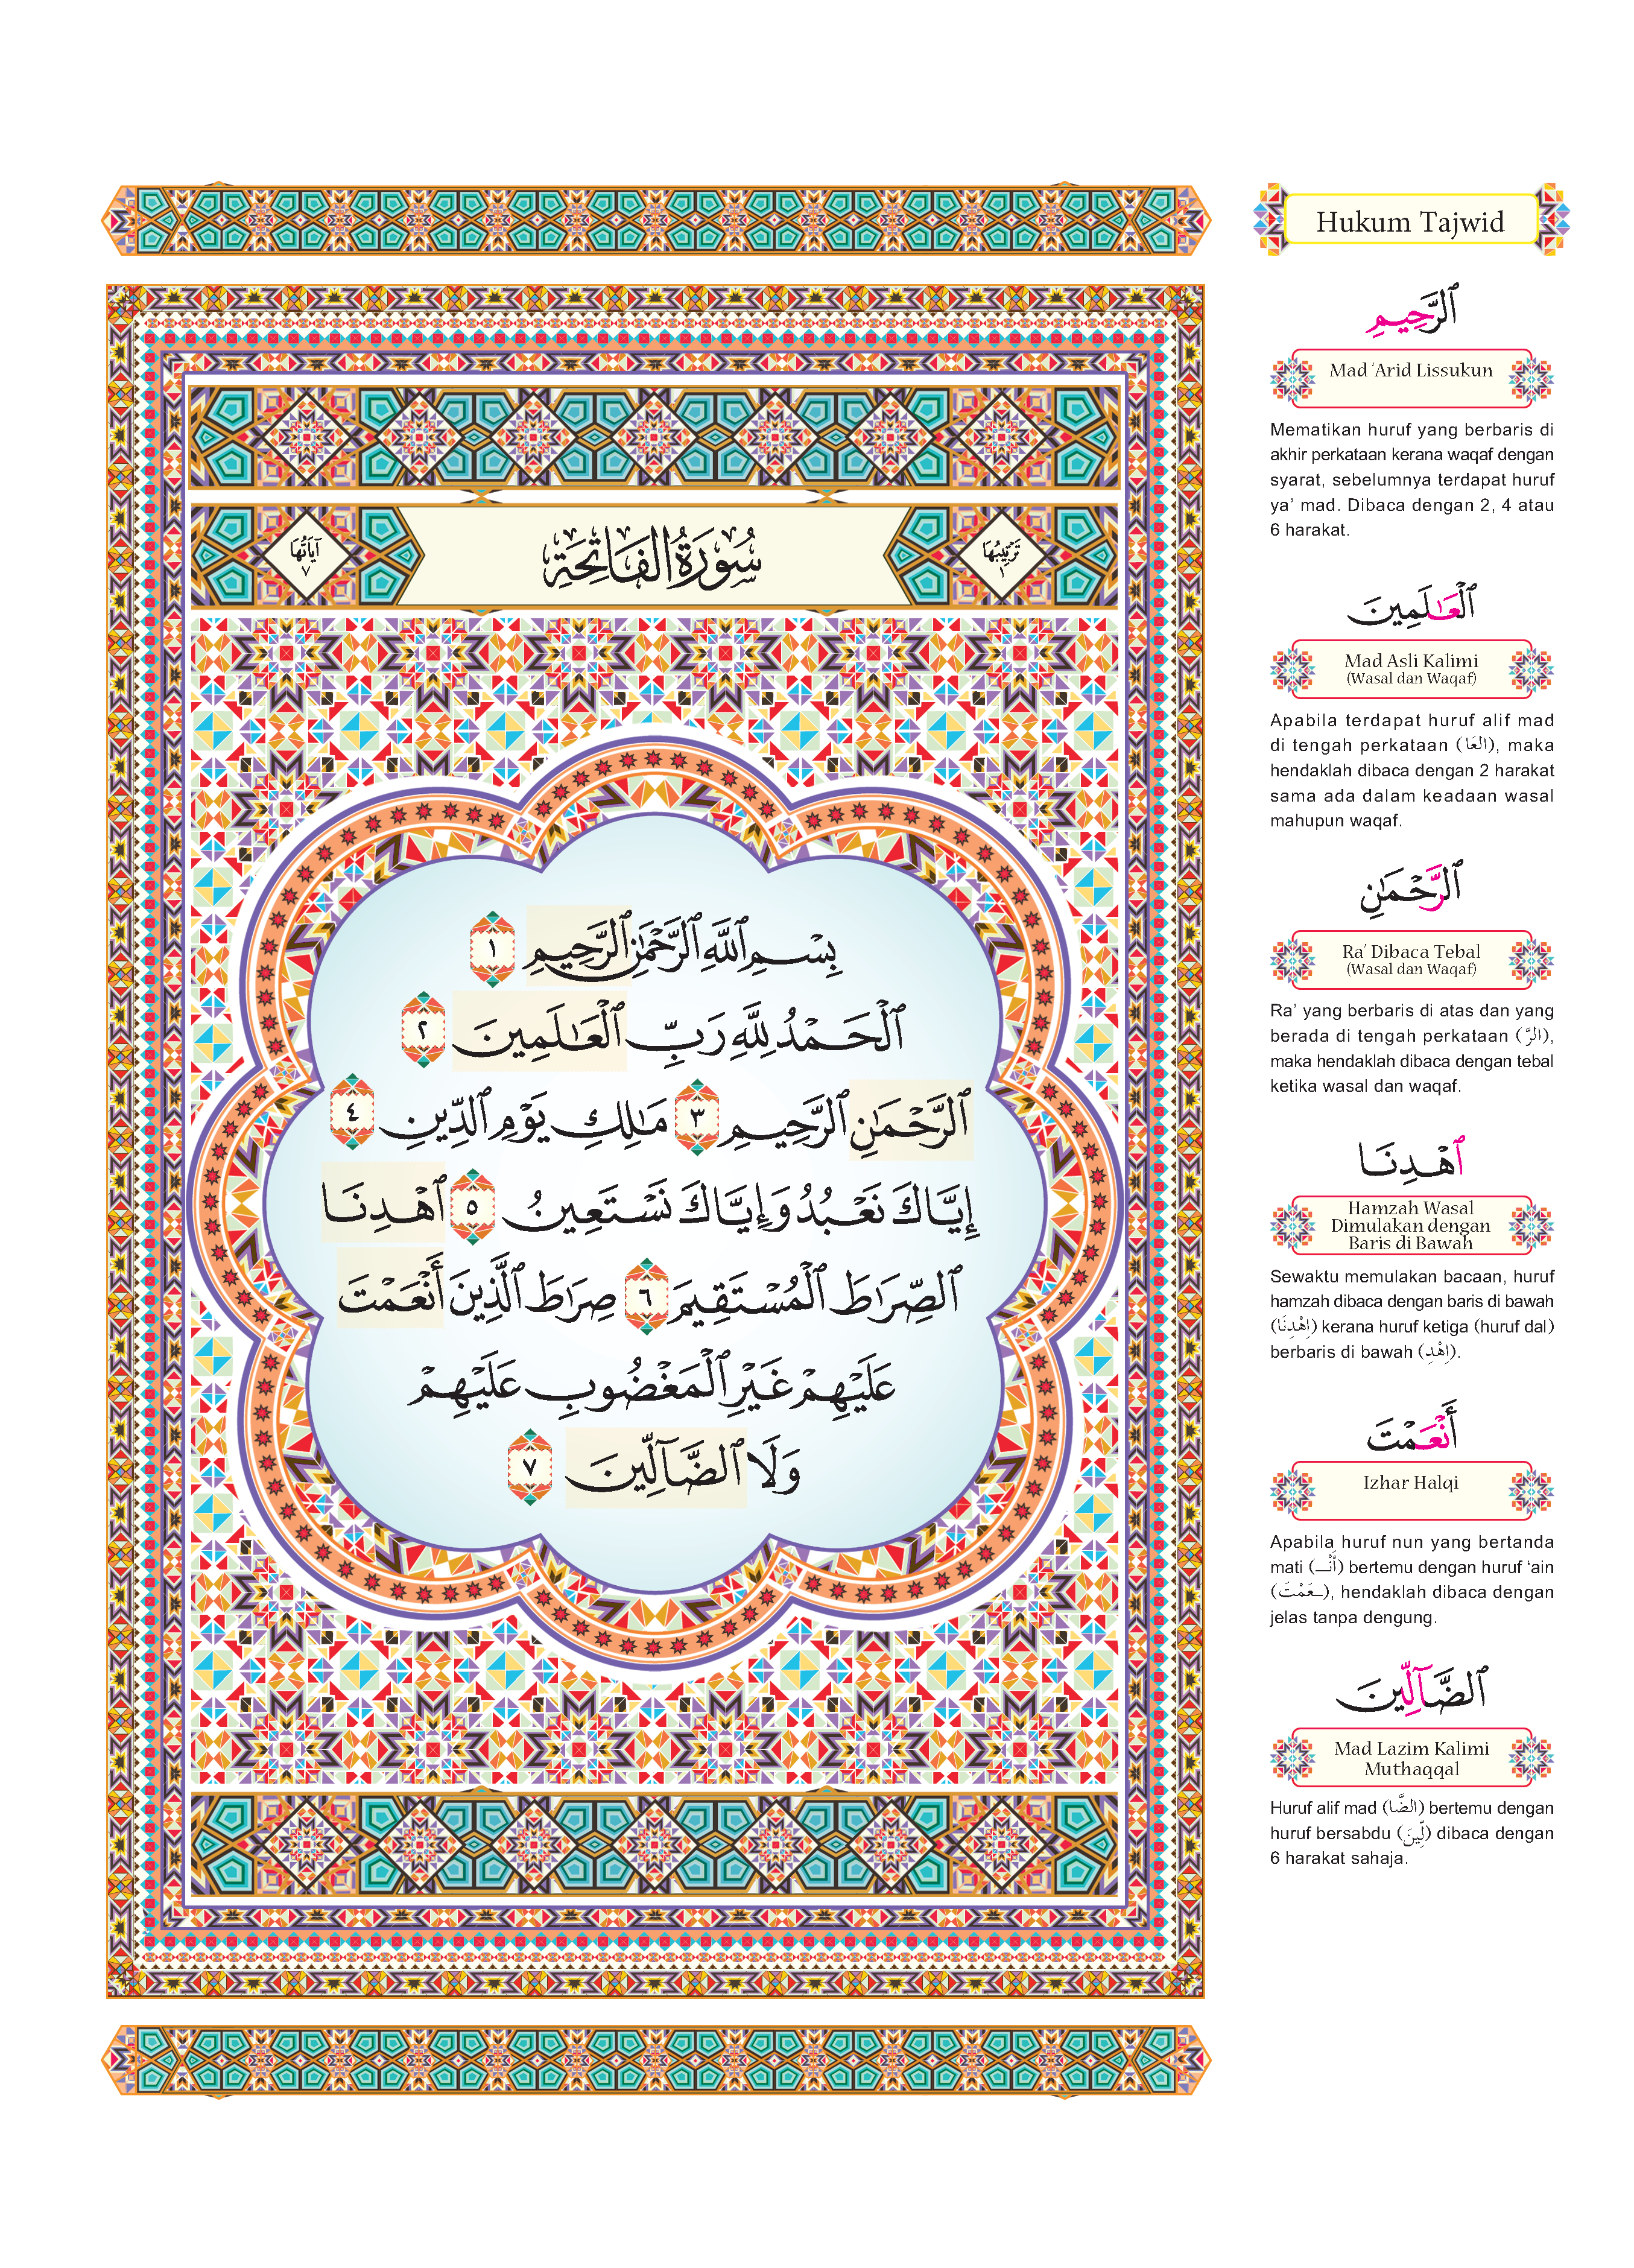 تَرْتِيبُهَا ١
سُورَةُ الفَاتِحَةِ
آيَاتُهَا ٧
بِسْمِ ٱللَّهِ ٱلرَّحْمَٰنِ ٱلرَّحِيمِ ١
ٱلْحَمْدُ لِلَّهِ رَبِّ ٱلْعَٰلَمِينَ ٢
ٱلرَّحْمَٰنِ ٱلرَّحِيمِ ٣ مَٰلِكِ يَوْمِ ٱلدِّينِ ٤
إِيَّاكَ نَعْبُدُ وَإِيَّاكَ نَسْتَعِينُ ٥ ٱهْدِنَا
ٱلصِّرَٰطَ ٱلْمُسْتَقِيمَ ٦ صِرَٰطَ ٱلَّذِينَ أَنْعَمْتَ
عَلَيْهِمْ غَيْرِ ٱلْمَغْضُوبِ عَلَيْهِمْ
وَلَا ٱلضَّآلِّينَ ٧
Hukum Tajwid
ٱلرَّحِيمِ
Mad ‘Arid Lissukun
Mematikan huruf yang berbaris di
akhir perkataan kerana waqaf dengan
syarat, sebelumnya terdapat huruf
ya’ mad. Dibaca dengan 2, 4 atau
6 harakat.
ٱلْعَٰلَمِينَ
Mad Asli Kalimi
(Wasal dan Waqaf)
Apabila terdapat huruf alif mad
di tengah perkataan (العَا), maka
hendaklah dibaca dengan 2 harakat
sama ada dalam keadaan wasal
mahupun waqaf.
ٱلرَّحْمَٰنِ
Ra’ Dibaca Tebal
(Wasal dan Waqaf)
Ra’ yang berbaris di atas dan yang
berada di tengah perkataan (الرَّ),
maka hendaklah dibaca dengan tebal
ketika wasal dan waqaf.
ٱهْدِنَا
Hamzah Wasal
Dimulakan dengan
Baris di Bawah
Sewaktu memulakan bacaan, huruf
hamzah dibaca dengan baris di bawah
(اِهْدِنَا) kerana huruf ketiga (huruf dal)
berbaris di bawah (اِهْدِ).
أَنْعَمْتَ
Izhar Halqi
Apabila huruf nun yang bertanda
mati (أَنْـ) bertemu dengan huruf ‘ain
(ـعَمْتَ), hendaklah dibaca dengan
jelas tanpa dengung.
ٱلضَّآلِّينَ
Mad Lazim Kalimi
Muthaqqal
Huruf alif mad (الضَّا) bertemu dengan
huruf bersabdu (لِّينَ) dibaca dengan
6 harakat sahaja.